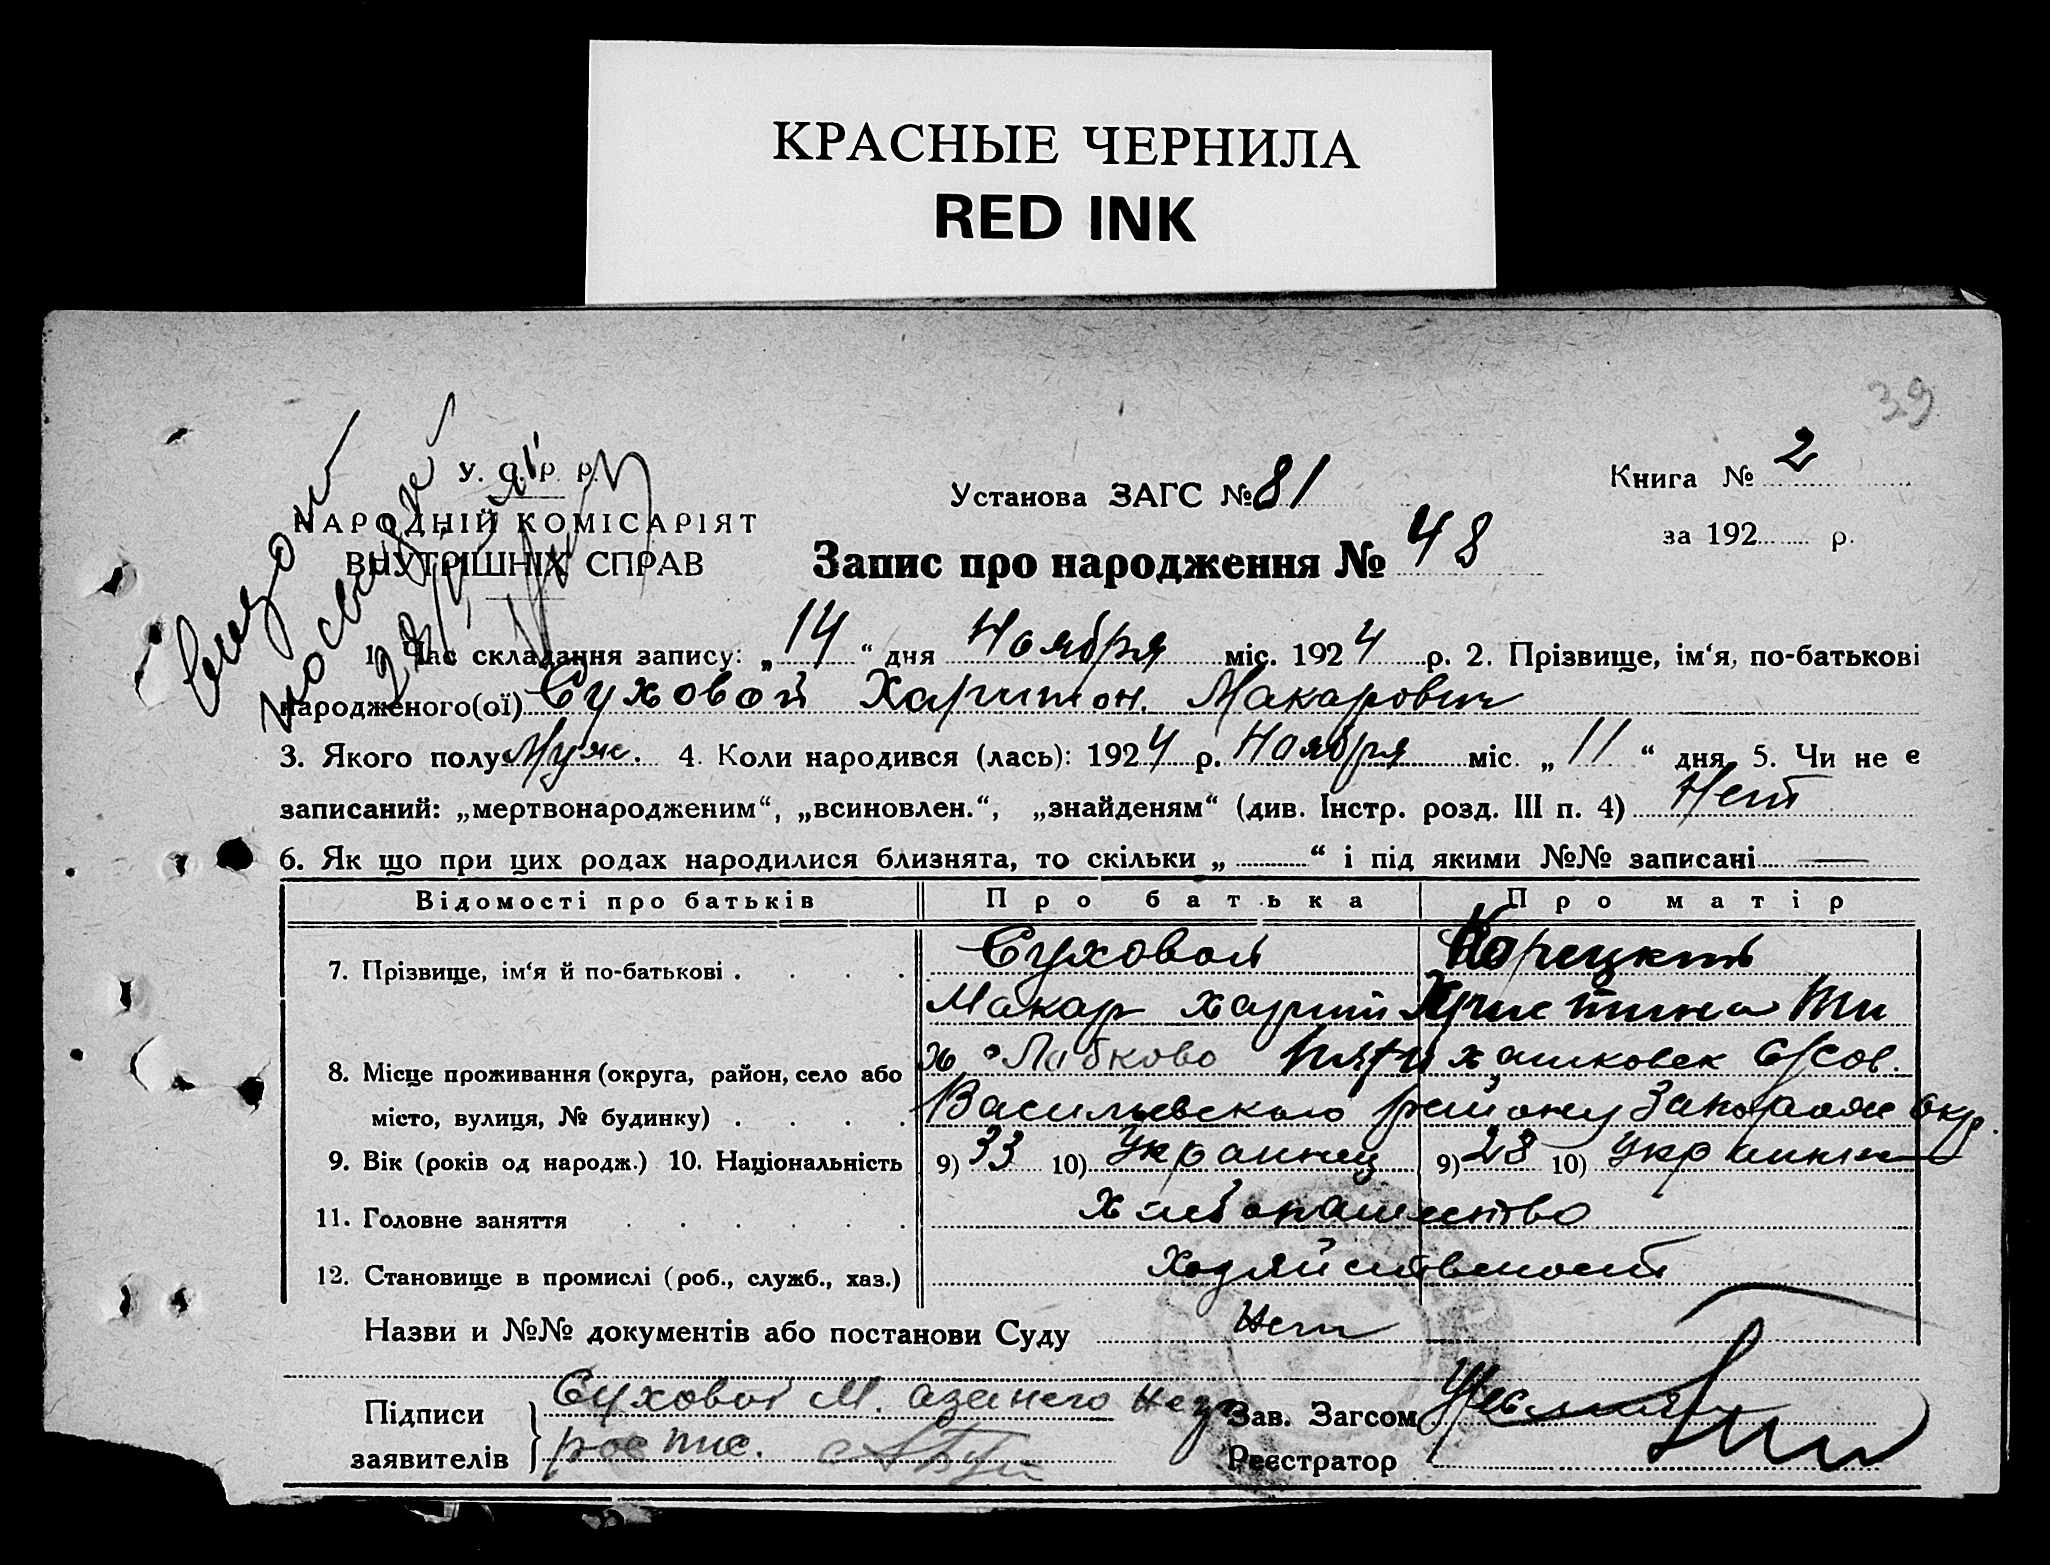 КРАСНЫЕ ЧЕРНИЛА
RED INK
39
У. С. Р. Р.
НАРОДНІЙ КОМІСАРІЯТ
ВНУТРІШНІХ СПРАВ
Установа ЗАГС № 81
Книга № 2
за 192 р.
Запис про народження № 48
1. Час складання запису: „14“ дня Ноября міс. 1924 р. 2. Прізвище, ім‘я, по-батькові
народженого(ої) Суховой Харитон Макарович
3. Якого полу Муж. 4. Коли народився (лась): 1924 р. Ноября міс. „11“ дня 5. Чи не є
записаний: „мертвонародженим“, „всиновлен.“, „знайденям“ (див. Інстр. розд. III п. 4) Нет
6. Як що при цих родах народилися близнята, то скільки „ “ і під якими №№ записані —
Відомості про батьків Про батька Про матір
7. Прізвище, ім‘я й по-батькові Суховой
Макар Харит Христина Ти
8. Місце проживання (округа, район, село або х
місто, вулиця, № будинку) Васильевского району Запорожс окр.
9. Вік (років од народж.) 10. Національність 9) 33 10) Украинец 9) 28 10) украинка
11. Головне заняття хлебопашество
12. Становище в промислі (роб., служб., хаз.)
Назви и №№ документів або постанови Суду Нет
Підписи Суховой М. а за него Зав. Загсом
заявителів роспис. Реєстратор